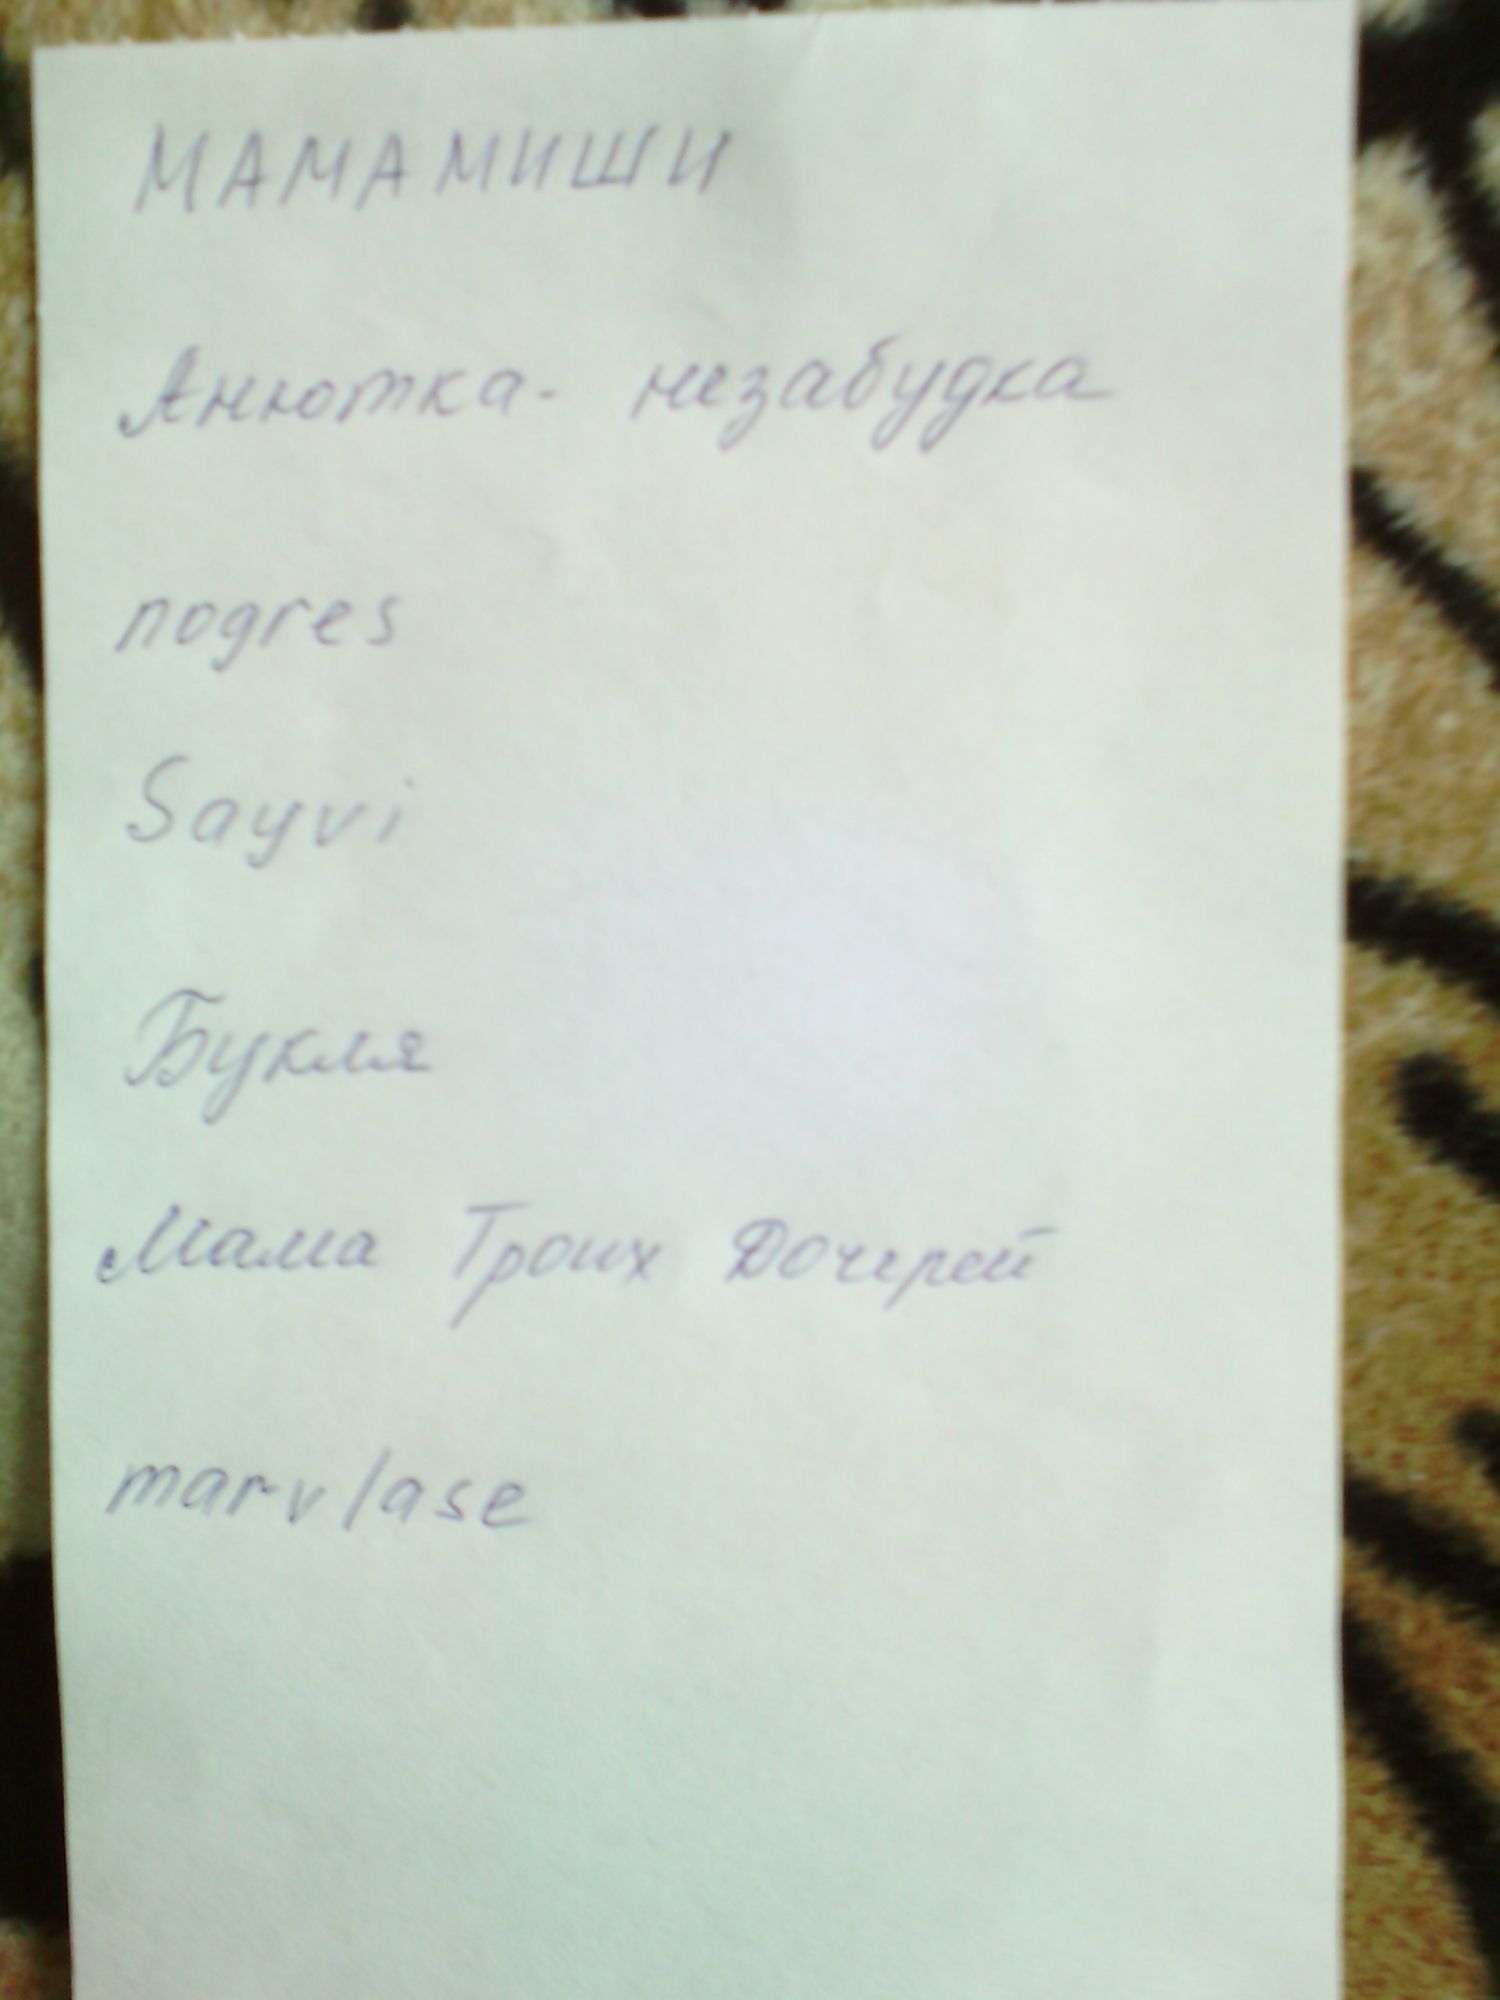 МАМАМИШИ
Анютка- незабудка
nogres
Sayvi
Букля
Мама Троих Дочерей
marvlase